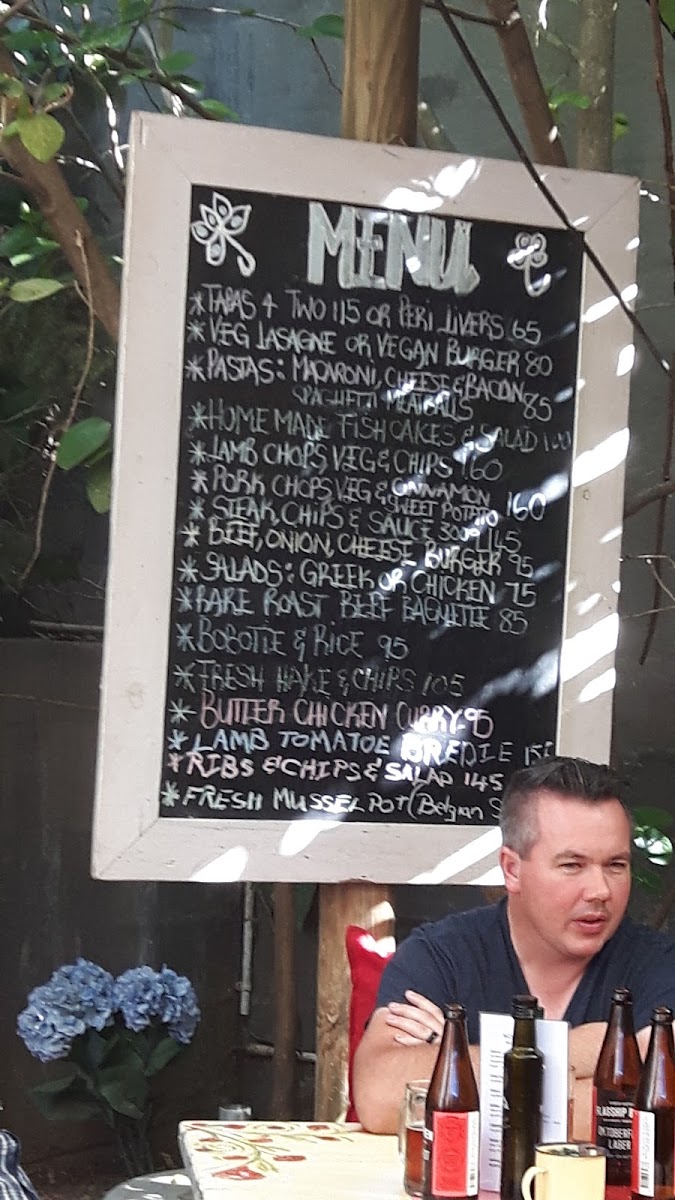 MENU
*TAPAS 4 TWO 115 OR PERI LIVERS 65
*VEG LASAGNE OR VEGAN BURGER 80
*PASTAS: MACARONI, CHEESE & BACON
SPAGHETTI MEATBALLS 85
*HOME MADE FISHCAKES & SALAD
*LAMB CHOPS, VEG & CHIPS 160
*PORK CHOPS, VEG & CINNAMON
SWEET POTATO 160
*STEAK, CHIPS & SAUCE 300g 145
*BEEF, ONION, CHEESE BURGER 95
*SALADS: GREEK OR CHICKEN 75
*RARE ROAST BEEF BAGUETTE 85
*BOBOTIE & RICE 95
*FRESH HAKE & CHIPS 105
*BUTTER CHICKEN CURRY 95
*LAMB TOMATOE BREDIE
*RIBS & CHIPS & SALAD 145
*FRESH MUSSEL POT (Belgian S
FLAGSHIP
LAGER